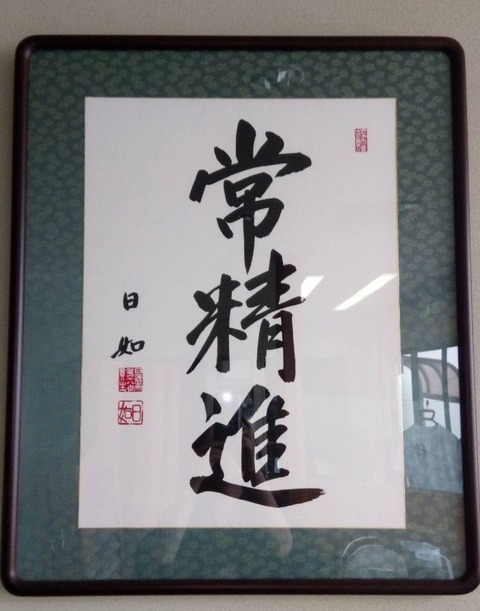 常精進
日如